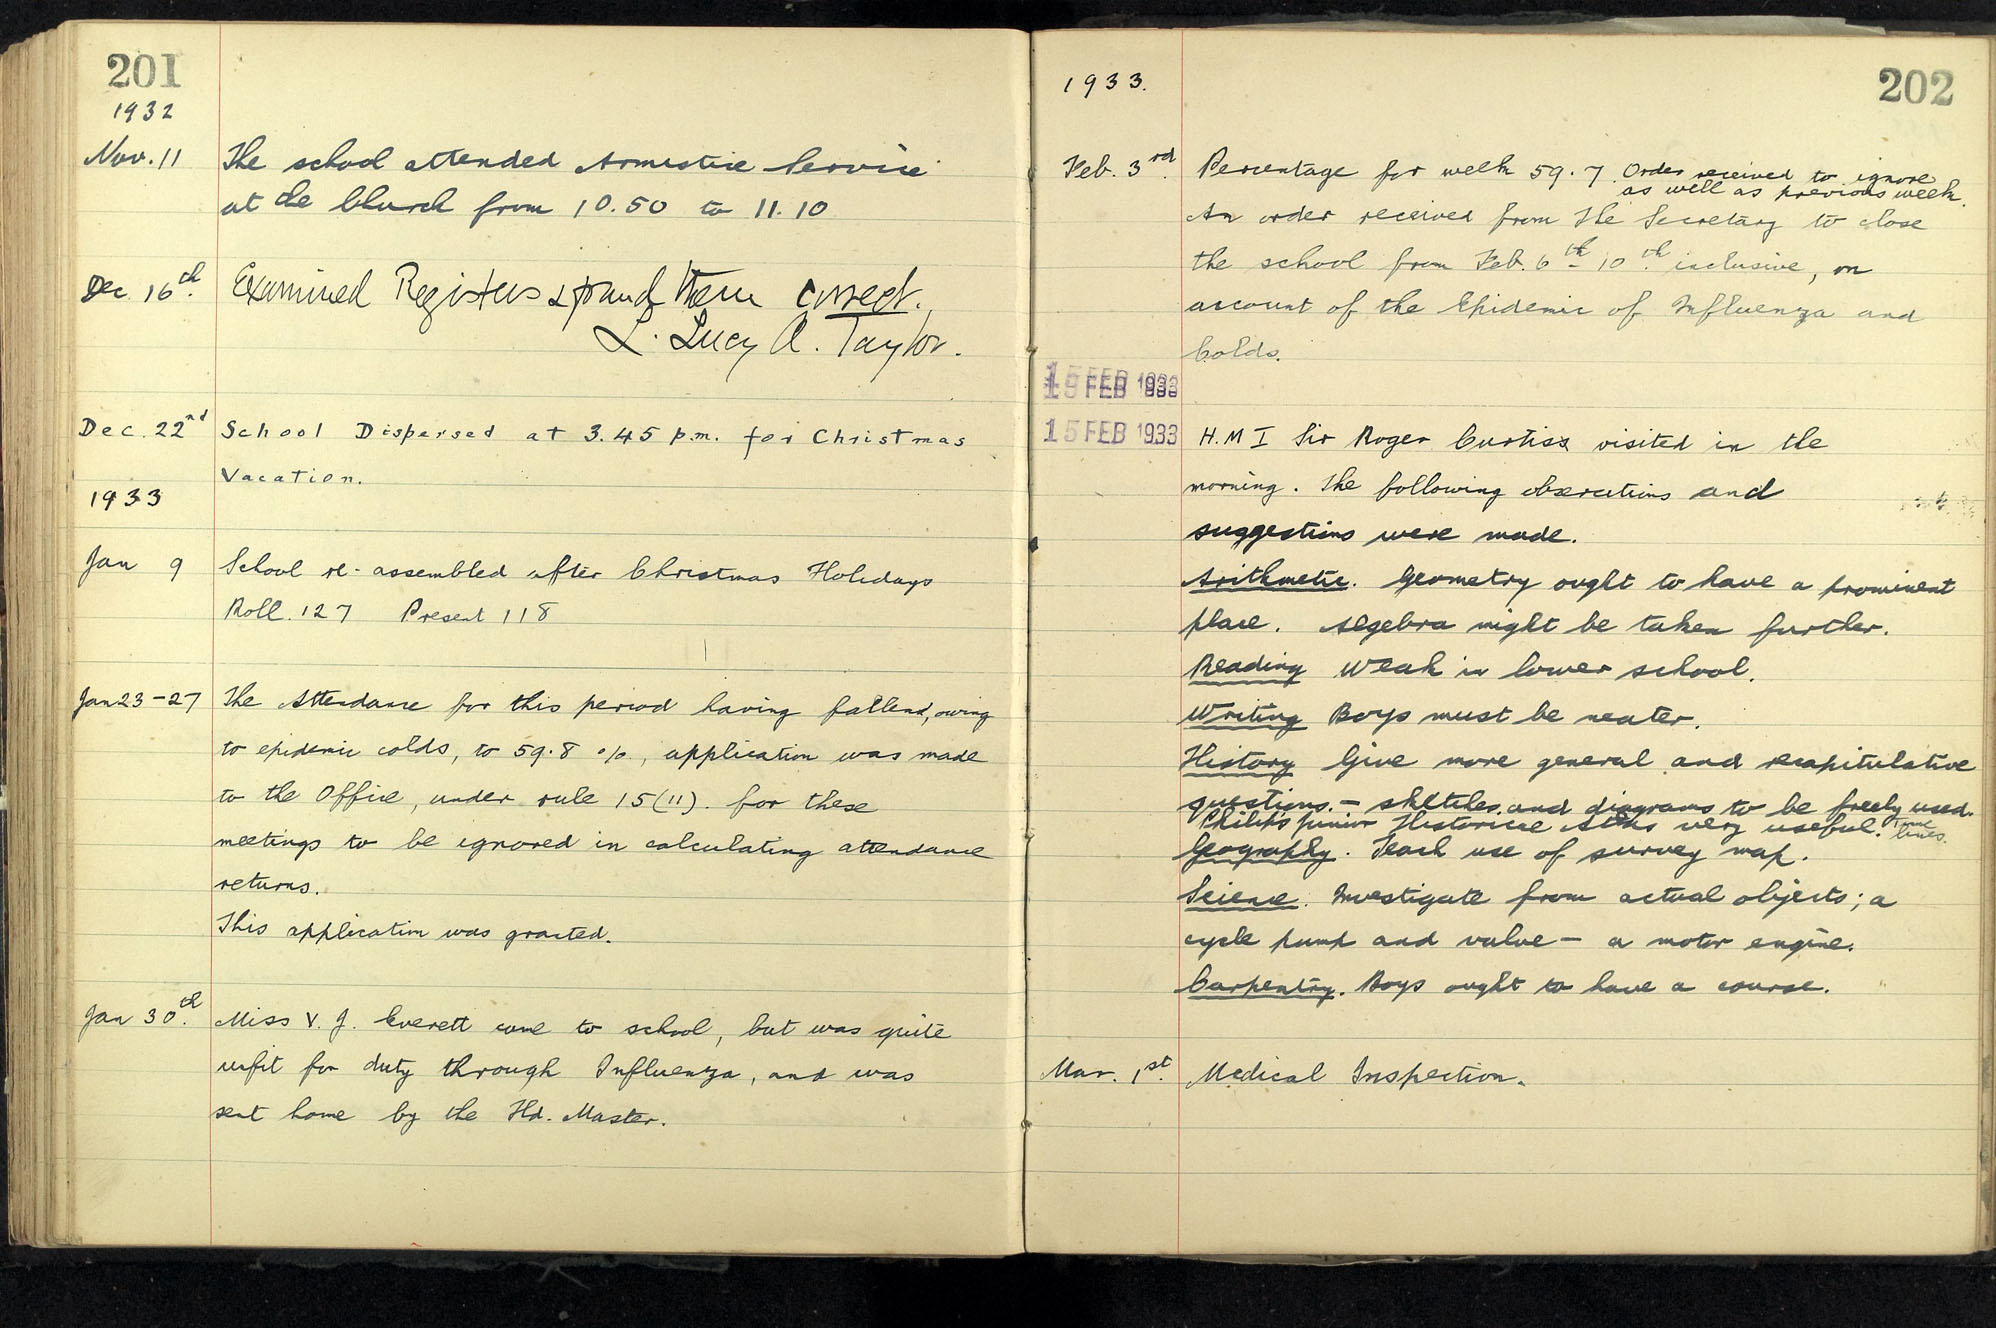 201
1932
Nov. 11 The school attended Armistice Service
at the Church from 10.50 to 11.10
Dec 16th. Examined Registers & found them correct.
L. Lucy A. Taylor.
Dec. 22nd School Dispersed at 3.45 p.m. for Christmas
Vacation.
1933
Jan 9 School re-assembled after Christmas Holidays
Roll. 127 Present 118
Jan 23-27 The Attendance for this period having fallen, owing
to epidemic colds, to 59.8 %, application was made
to the Office, under rule 15(11). for these
meetings to be ignored in calculating attendance
returns.
This application was granted.
Jan 30th. Miss V. J. Everett came to school, but was quite
unfit for duty through Influenza, and was
sent home by the Hd. Master.
1933.
202
Feb. 3rd. Percentage for week 59.7 Order received to ignore
as well as previous week.
An order received from the Secretary to close
the school from Feb. 6th - 10th. inclusive, on
account of the Epidemic of Influenza and
Colds.
15 FEB 1933
15 FEB 1933 H.M I Sir Roger Curtiss visited in the
morning. The following observations and
suggestions were made.
Arithmetic. Geometry ought to have a prominent
place. Algebra might be taken further.
Reading weak in lower school.
Writing Boys must be neater.
History Give more general and recapitulative
questions. - sketches and diagrams to be freely used.
Philip's Junior Historical Atlas very useful. Time
lines.
Geography. Teach use of survey map.
Science. Investigate from actual objects; a
cycle pump and valve - a motor engine.
Carpentry. Boys ought to have a course.
Mar. 1st. Medical Inspection.